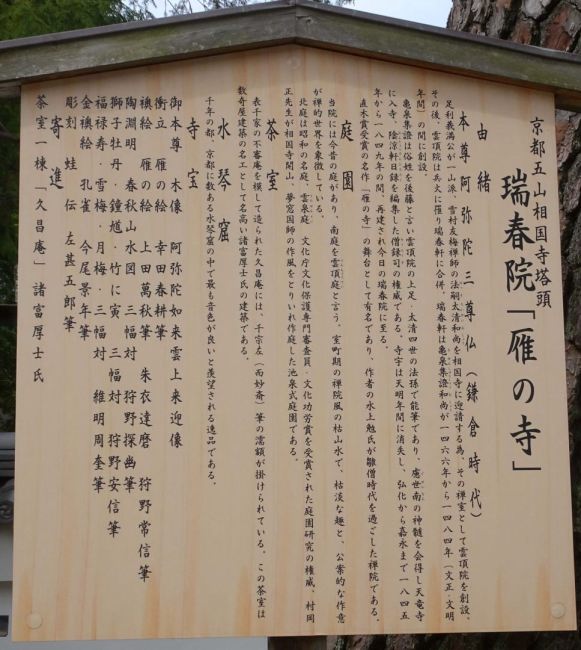 京都五山相国寺塔頭
瑞春院「雁の寺」
由緒
本尊阿弥陀三尊仏(鎌倉時代)
足利義満公が一山派、雪村友梅禅師の法嗣太清和尚を相国寺に迎請する為、その禅室として雲頂院を創設、
その後、雲頂院は兵火に罹り瑞春軒に合併、瑞春軒は亀泉集證和尚が一四六六年から一四八四年(文正・文明
年間)の間に創設。
亀泉集證は俗姓を後藤と言い雲頂院の上足・太清四世の法孫で能筆であり、虚世南の神髄を会得し天竜寺
に入寺、陰涼軒日録を編集した僧録司の権威である。寺宇は天明年間に消失し、弘化から嘉永まで一八四五
年から一八四九年の間、再建され今日の瑞春院に至る。
直木賞受賞の名作「雁の寺」の舞台として有名であり、作者の水上勉氏が雛僧時代を過ごした禅院である。
庭園
当院には今昔の庭があり、南庭を雲頂庭と言う。室町期の禅院風の枯山水で、枯淡な趣と、公案的な作意
が禅的世界を象徴している。
北庭は昭和の名庭、雲泉庭。文化庁文化保護専門審査員、文化功労賞を受賞された庭園研究の権威、村岡
正先生が相国寺開山、夢窓国師の作風をとりいれ作庭した池泉式庭園である。
茶室
表千家の不審庵を模して造られた久昌庵には、千宗左(而妙斎)筆の濡額が掛けられている。この茶室は
数奇屋建築の名工として名高い諸富厚士氏の建築である。
水琴窟
千年の都、京都に数ある水琴窟の中で最も音色が良いと羨望される逸品である。
寺宝
御本尊 木像 阿弥陀如来雲上来迎像
衝立 雁の絵 幸田春耕筆
襖絵 雁の絵 上田萬秋筆 朱衣達磨 狩野常信筆
陶淵明 春秋山水図 三幅対 狩野探幽筆
獅子牡丹・鐘馗・竹に寅 三幅対 狩野安信筆
福禄寿・雪梅・月梅・三幅対 維明周奎筆
金襖絵 孔雀 今尾景年筆
彫刻 蛙 伝 左甚五郎筆
寄進
茶室一棟「久昌庵」諸富厚士氏